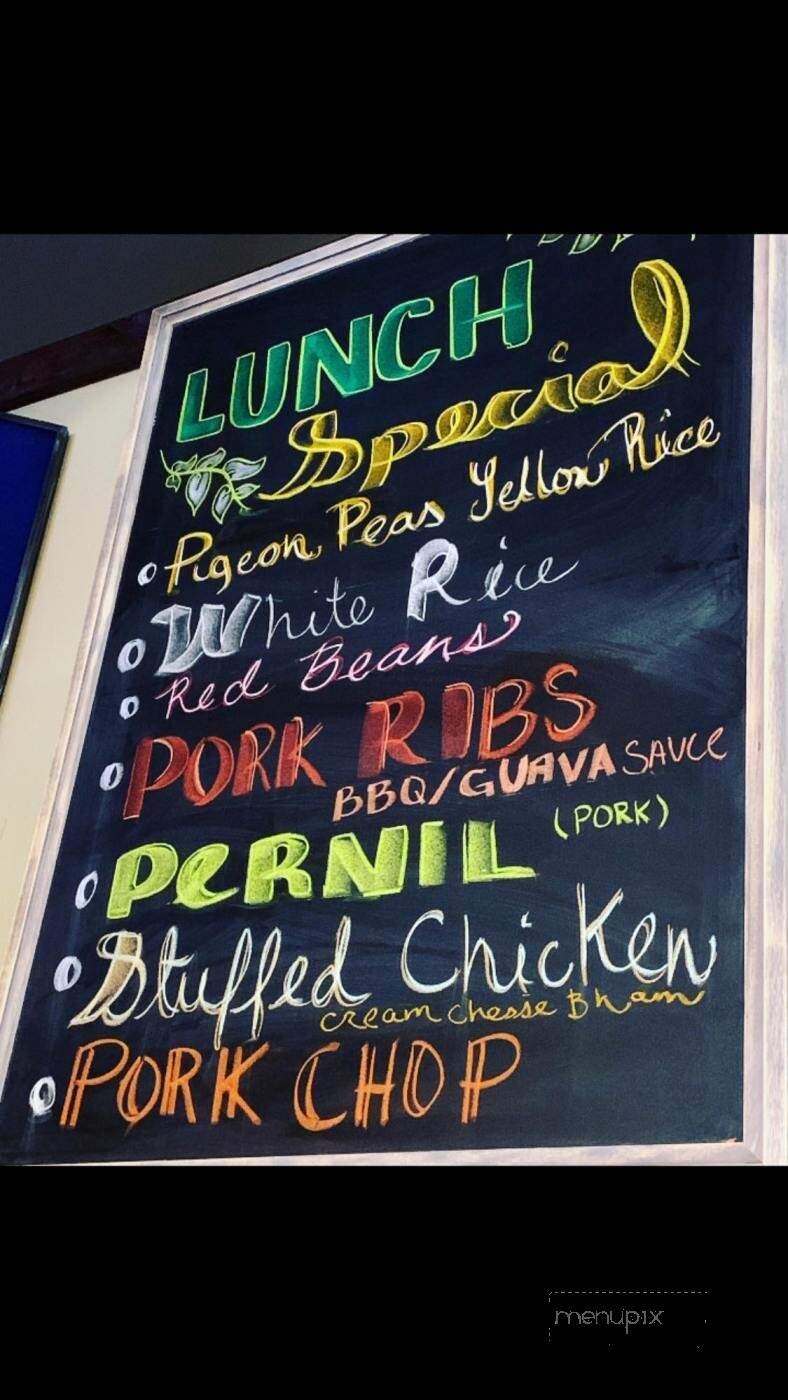 LUNCH
Special
Pigeon Peas Yellow Rice
White Rice
Red Beans
PORK RIBS
BBQ/GUAVA SAUCE
PERNIL (PORK)
Stuffed Chicken
cream chesse & ham
PORK CHOP
menupix